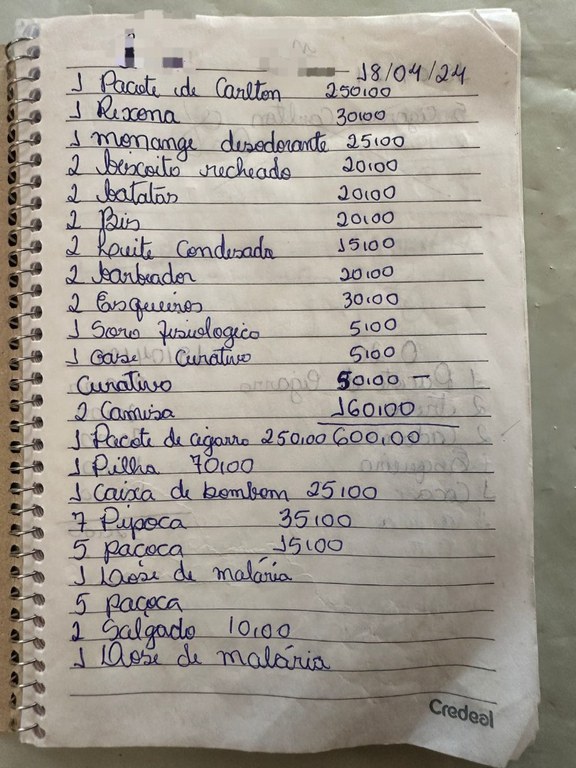 18/04/24
1 Pacote de Carlton 250,00
1 Rexona 30,00
1 monange desodorante 25,00
2 biscoito recheado 20,00
2 batatas 20,00
2 Bis 20,00
2 Leite Condesado 15,00
2 barbeador 20,00
2 Esqueiros 30,00
1 Soro fisiologico 5,00
1 gase Curativo 5,00
Curativo 50,00 —
2 Camisa 160,00
1 Pacote de cigarro 250,00 600,00
1 Pilha 70,00
1 Caixa de bombom 25,00
7 Pipoca 35,00
5 paçoca 15,00
1 Dose de malária
5 paçoca
2 Salgado 10,00
1 Dose de malária
Credeal